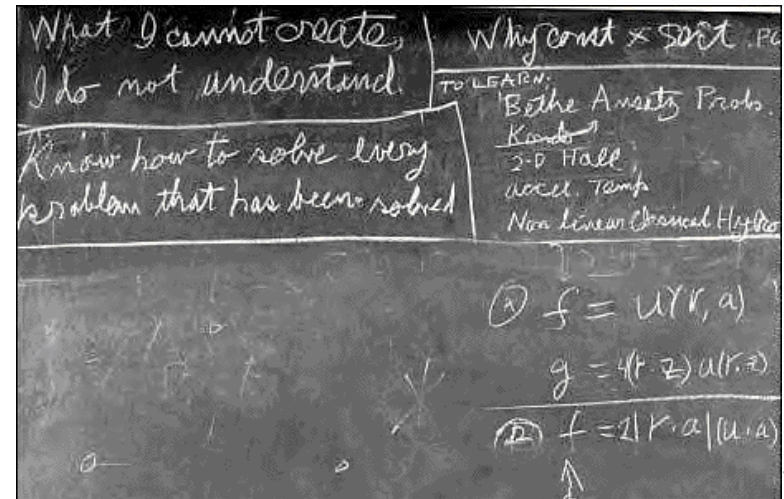 What I cannot create,
I do not understand.
Know how to solve every
problem that has been solved
Why const × sort . PO
TO LEARN:
Bethe Ansatz Probs.
Kondo
2-D Hall
accel. Temp
Non linear Classical Hydro
Ⓐ f = u(r, a)
g = 4(r·z) u(r.z)
Ⓑ f = 2|r·a|(u·a)